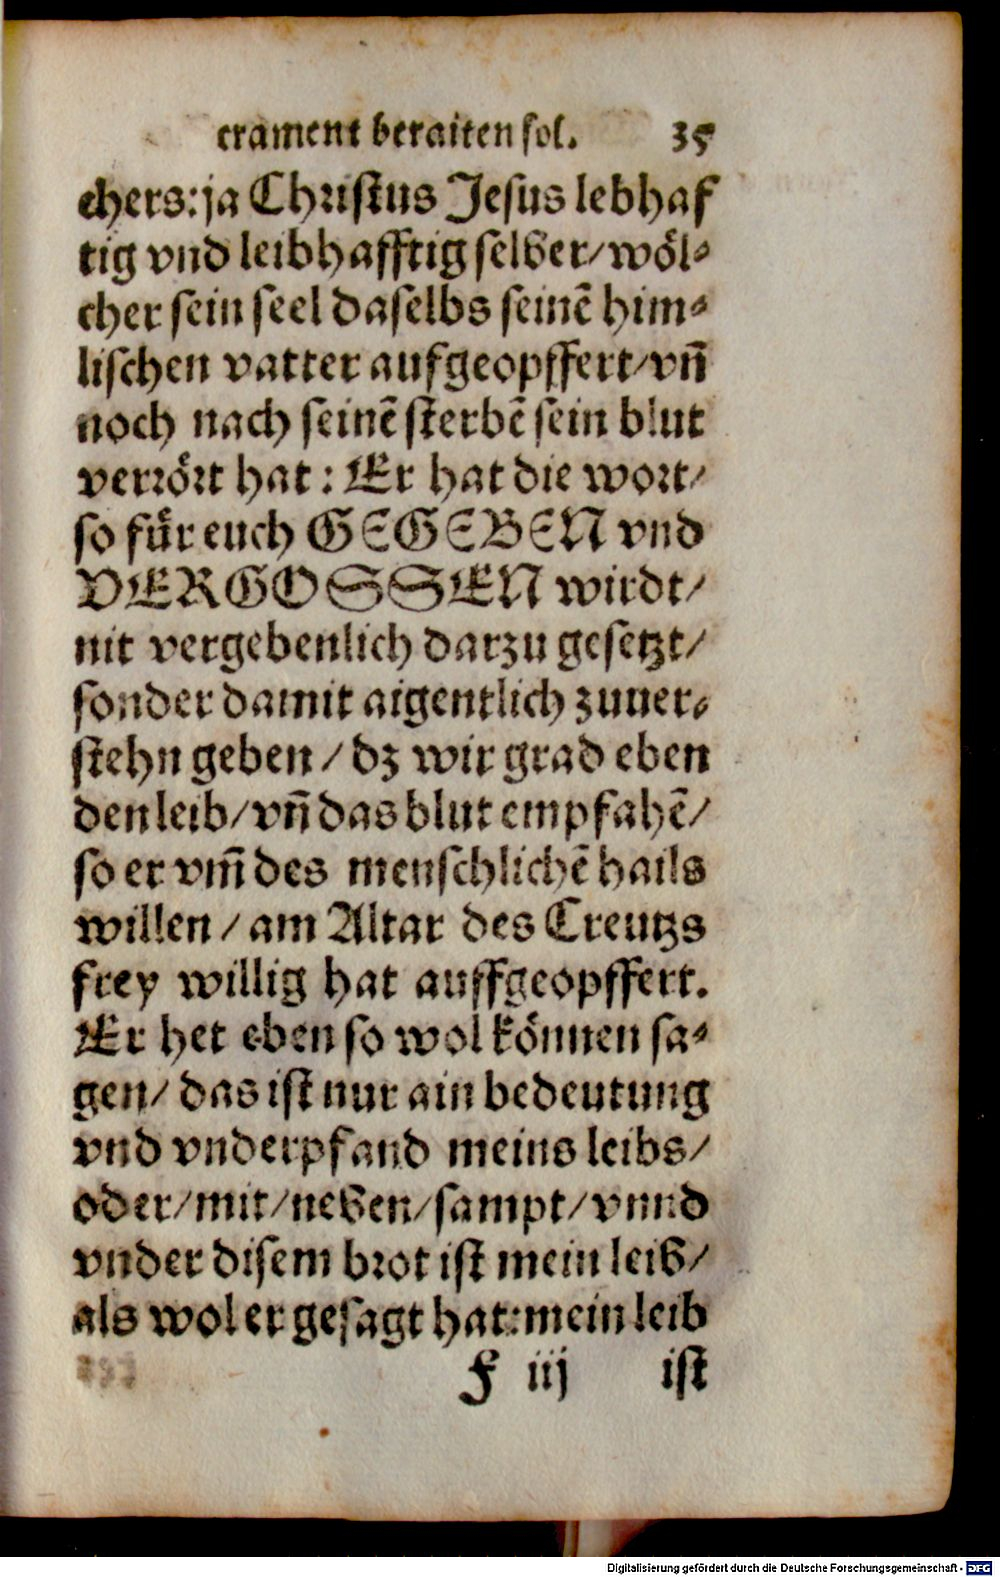 crament beraiten sol. 35
chers: ja Christus Jesus lebhaf
tig vnd leibhafftig selber/wöl⸗
cher sein seel daselbs seinē him⸗
lischen vatter aufgeopffert/vñ
noch nach seinē sterbē sein blut
verrört hat: Er hat die wort/
so für euch GEGEBEN vnd
VERGOSSEN wirdt/
nit vergebenlich darzu gesetzt/
sonder damit aigentlich zuuer⸗
stehn geben/dz wir grad eben
den leib/vñ das blut empfahē/
so er vm̄ des menschlichē hails
willen/am Altar des Creutzs
frey willig hat auffgeopffert.
Er het eben so wol können sa⸗
gen/das ist nur ain bedeutung
vnd vnderpfand meins leibs/
oder/mit/neben/sampt/vnnd
vnder disem brot ist mein leib/
als wol er gesagt hat: mein leib
F iij ist
Digitalisierung gefördert durch die Deutsche Forschungsgemeinschaft - DFG